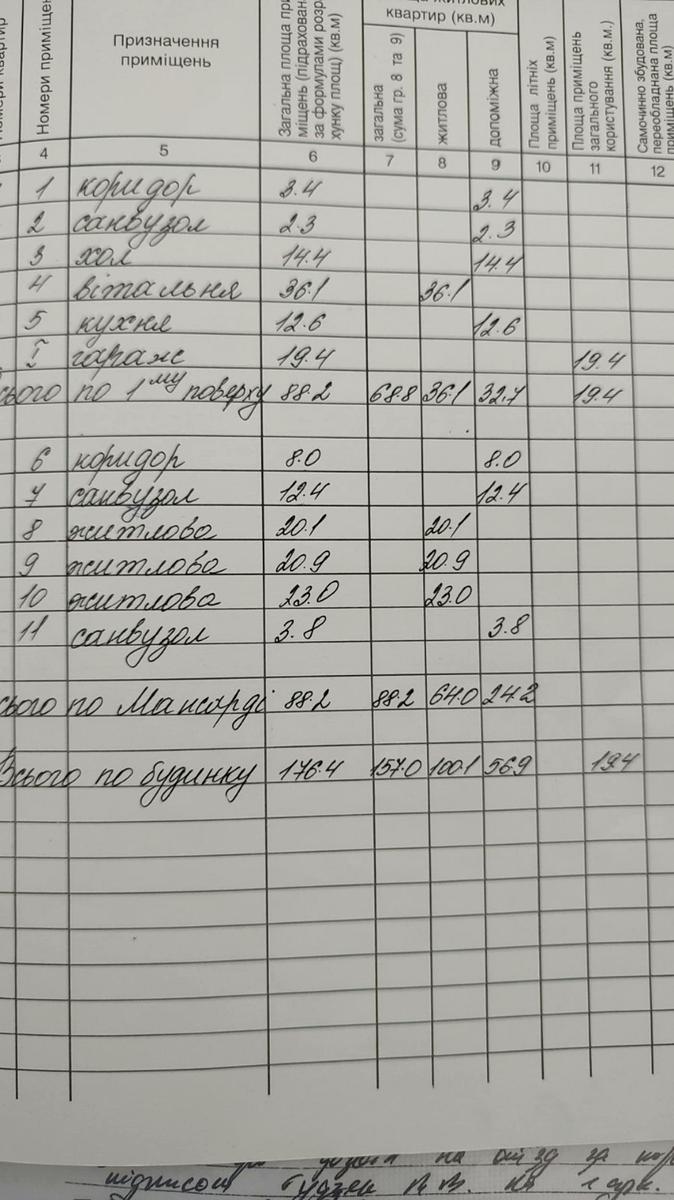 квартир (кв.м)
Номери приміщень
Призначення
приміщень
Загальна площа при-
міщень (підрахована
за формулами розра-
хунку площ) (кв.м)
загальна
(сума гр. 8 та 9)
житлова
допоміжна
Площа літніх
приміщень (кв.м)
Площа приміщень
загального
користування (кв.м.)
Самочинно збудована,
переобладнана площа
приміщень (кв.м)
4 5 6 7 8 9 10 11 12
1 коридор 3.4 3.4
2 санвузол 2.3 2.3
3 хол 14.4 14.4
4 вітальня 36.1 36.1
5 кухня 12.6 12.6
І гараж 19.4 19.4
сього по 1му поверху 88.2 68.8 36.1 32.7 19.4
6 коридор 8.0 8.0
7 санвузол 12.4 12.4
8 житлова 20.1 20.1
9 житлова 20.9 20.9
10 житлова 23.0 23.0
11 санвузол 3.8 3.8
сього по Мансарді 88.2 88.2 64.0 24.2
Всього по будинку 176.4 157.0 100.1 56.9 19.4
підписом